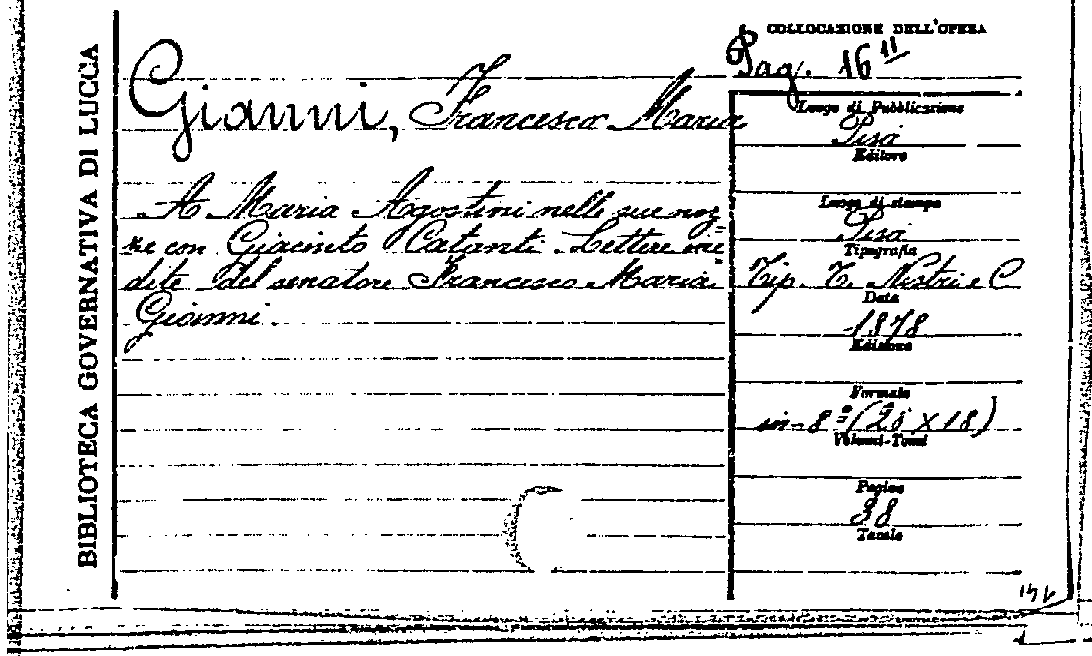 BIBLIOTECA GOVERNATIVA DI LUCCA
Gianni, Francesco Maria
A Maria Agostini nelle sue noz=
ze con Giacinto Catanti. Lettere ine=
dite del senatore Francesco Maria
Gianni.
COLLOCAZIONE DELL'OPERA
Pag. 16 11
Luogo di Pubblicazione
Pisa
Editore
Luogo di stampa
Pisa
Tipografia
Tip. T. Nistri e C
Data
1878
Edizione
Formato
in-8º (26 x 18)
Volumi-Tomi
Pagine
38
Tavole